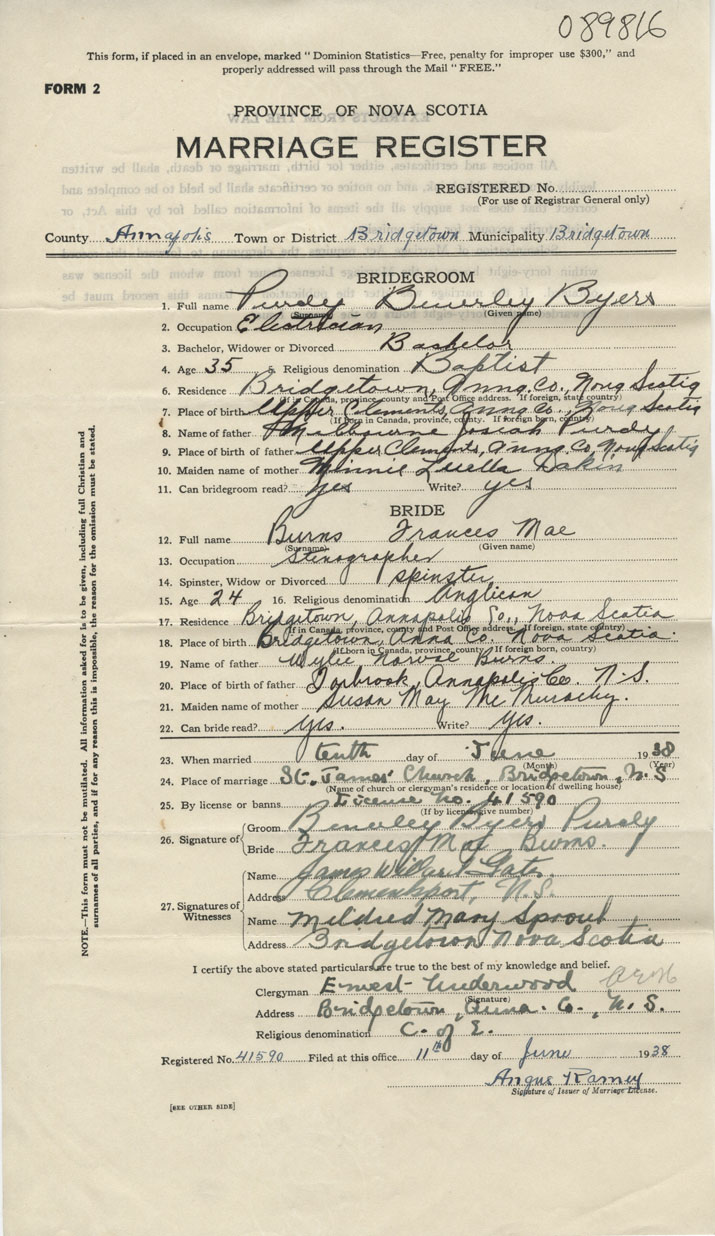 089816
This form, if placed in an envelope, marked "Dominion Statistics—Free, penalty for improper use $300," and
properly addressed will pass through the Mail "FREE."
FORM 2
PROVINCE OF NOVA SCOTIA
MARRIAGE REGISTER
REGISTERED No.
(For use of Registrar General only)
County Annapolis Town or District Bridgetown Municipality Bridgetown
BRIDEGROOM
1. Full name Purdy Beverley Byers
(Surname) (Given name)
2. Occupation Electrician
3. Bachelor, Widower or Divorced Bachelor
4. Age 35 5. Religious denomination Baptist
6. Residence Bridgetown, Anna. Co., Nova Scotia
(If in Canada, province, county and Post Office address. If foreign, state country)
7. Place of birth Upper Clements, Anna Co., Nova Scotia
(If born in Canada, province, county. If foreign born, country)
8. Name of father Milbourne Josiah Purdy
9. Place of birth of father Upper Clements, Anna. Co, Nova Scotia
10. Maiden name of mother Minnie Luella Dakin
11. Can bridegroom read? yes Write? yes
BRIDE
12. Full name Burns Frances Mae
(Surname) (Given name)
13. Occupation Stenographer
14. Spinster, Widow or Divorced spinster
15. Age 24 16. Religious denomination Anglican
17. Residence Bridgetown, Annapolis Co., Nova Scotia
(If in Canada, province, county and Post Office address. If foreign, state country)
18. Place of birth Bridgetown, Anna Co. Nova Scotia.
(If born in Canada, province, county. If foreign born, country)
19. Name of father Wylie Norval Burns
20. Place of birth of father Torbrook, Annapolis Co. N.S.
21. Maiden name of mother Susan May
22. Can bride read? yes. Write? yes.
23. When married tenth day of June 1938
(Month) (Year)
24. Place of marriage St. James' Church, Bridgetown, N.S
(Name of church or clergyman's residence or location of dwelling house)
25. By license or banns License No. 41590
(If by license, give number)
26. Signature of
Groom Beverley Byers Purdy
Bride Frances Mae Burns.
27. Signatures of Witnesses
Name James Willard
Address Clementsport, N.S.
Name Mildred Mary Sproul
Address Bridgetown Nova Scotia
I certify the above stated particulars are true to the best of my knowledge and belief.
Clergyman Ernest Underwood
(Signature)
Address Bridgetown, Anna. Co., N.S.
Religious denomination C. of E.
Registered No. 41590 Filed at this office 11th day of June 1938
Angus Ramey
Signature of Issuer of Marriage License.
[SEE OTHER SIDE]
NOTE.—This form must not be mutilated. All information asked for is to be given, including full Christian and
surnames of all parties, and if for any reason this is impossible, the reason for the omission must be stated.